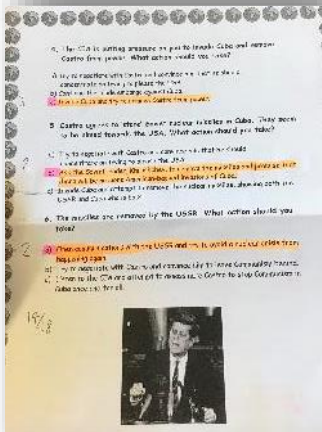 4. The CIA is putting pressure on you to invade Cuba and remove
Castro from power. What action should you take?
a) Try to negotiate with Castro and convince him that he should
concentrate on trying to please the USA.
b) Continue the trade embargo against Cuba.
c) Invade Cuba and try to remove Castro from power.
3
5. Castro agrees to store Soviet nuclear missiles in Cuba. They seem
to be aimed towards the USA. What action should you take?
a) Try to negotiate with Castro and convince him that he should
concentrate on trying to please the USA
2
b) Ask the Soviet leader, Khrushchev, to remove the missiles and promise that
there will be no more American-backed invasions of Cuba.
c) Invade Cuba and attempt to remove the nuclear missiles, showing both the
USSR and Cuba who is boss
6. The missiles are removed by the USSR. What action should you
take?
2
a) Open communications with the USSR and try to avoid a nuclear crisis from
happening again.
b) Try to negotiate with Castro and convince him to leave Communism behind.
c) Listen to the CIA and attempt to assassinate Castro to stop Communism in
Cuba once and for all.